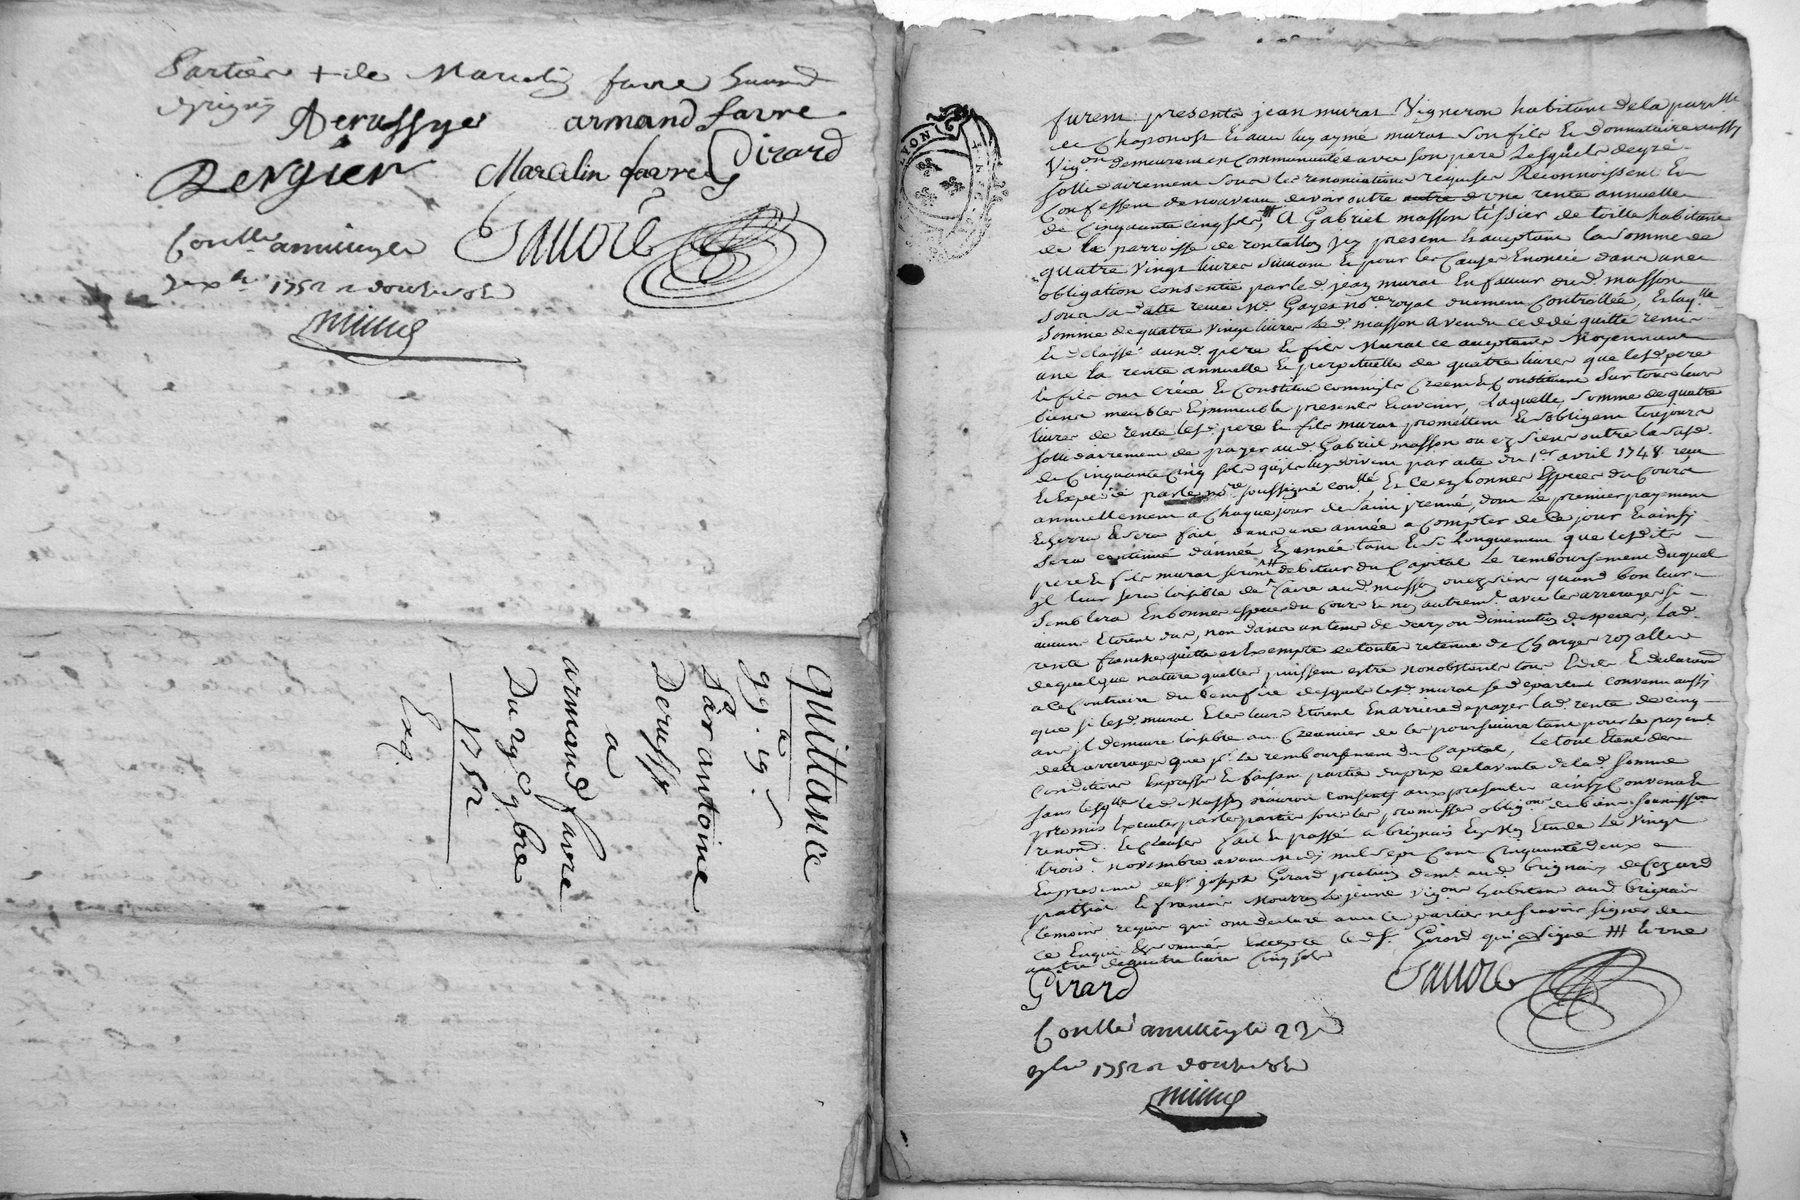 Parties + de Marcelin favre
Derussye armand favre
Dergier Marcelin favre Girard
Conllé a millery le Sauvore
1752 R douze sols
quittance
de
99.# 19.s
Par antoine
Derussy
a
armand favre
Du 29.e 9bre
1752
Exp.
LYON
furent presents jean murat Vigneron habitant de la parroisse
de Chaponost et avec luy aymé murat son fils et donnataire aussy
Vig.on demeurant en Communauté avec son pere Lesquels de gré
sollidairement sous les renonciations requises Reconnoissent et
Confessent de nouveau devoir outre autre d'une rente annuelle
de Cinquante cinq sols, A Gabriel masson tissier de toille habitant
de la parroisse de rontallon icy present et acceptant la somme de
quatre vingt livres suivant et pour les Causes Enoncée dans une
obligation consentie par led. jean murat En faveur dud. masson
sous sa datte receue M.e Gayet no.re royal duement Controllée, Et laq.lle
somme de quatre vingt livres led. masson a vendu ceddé quitté remis
et delaissé aud. pere et fils Murat ce acceptants Moyennant
une la rente annuelle et perpetuelle de quatre livres que lesd. pere
et fils ont créée et Constitué comme ils Créent et Constituent sur tous leurs
biens meubles et immeubles presents et avenir, Laquelle somme de quatre
livres de rente lesd. pere et fils murat promettent et s'obligent toujours
sollidairement de payer aud. Gabriel masson ou ez siens outre la susd.
de Cinquante cinq sols qu'ils luy doivent par acte du 1.er avril 1748 receu
et expedié par le no.re soussigné con.llé, Et Ce en bonnes Especes du Cours
annuellement a Chaque jour de Saint jrenné, dont le premier payement
Echerra et sera fait dans une année a compter de Ce jour Et ainsy
sera continué d'année En année tant et si Longuement que lesdits
pere et fils murat seront debiteurs du Capital Le remboursement duquel
jl leur sera loisible de faire aud. masson ou ez siens quand bon leur
semblera En bonnes especes du Cours et non autrem.t avec les arrerages si
aucuns Etoient dus, non dans un tems de decry ou diminution d'especes, Lad.
rente franche quitte et Exempte de toute retenue de Charges royalles
de quelque nature quelles puissent estre nonobstants tous Edits Et declarations
a ce Contraire du benefice desquels lesd. murat se departent convenu aussy
que si lesd. murat Et les leurs Etoient En arriere de payer lad. rente de cinq
ans jl demeure loisible au Creancier de les poursuivre tant pour le payem.t
des arrerages que p.r le remboursement du Capital, Le tout Etant des
Conditions Expresses et faisant partie du prix de la vente de lad. somme
sans lesq.lles led. Masson n'auroit Consenty aux presentes ainsy Convenu Et
promis Executer par les parties sous les promisses oblig.ons de biens soumissions
renond. Et Clauses fait et passé a brignais En Mon Etude Le Vingt
trois.e novembre avant Midy mil sept Cent Cinquante deux
En presence de S.r joseph Girard praticien dem.t aud. brignais de Cezard
pathiot et francois Mourron le jeune vig.ons habitant aud. brignais
temoins requis qui ont declaré avec les parties ne scavoir signer de
ce Enquis et sommés Excepté led. S.r Girard qui a signé ### et une
autre de quatre livres Cinq sols
Girard Sauvore
Conllé a millery le 23
9bre 1752 R douze sols